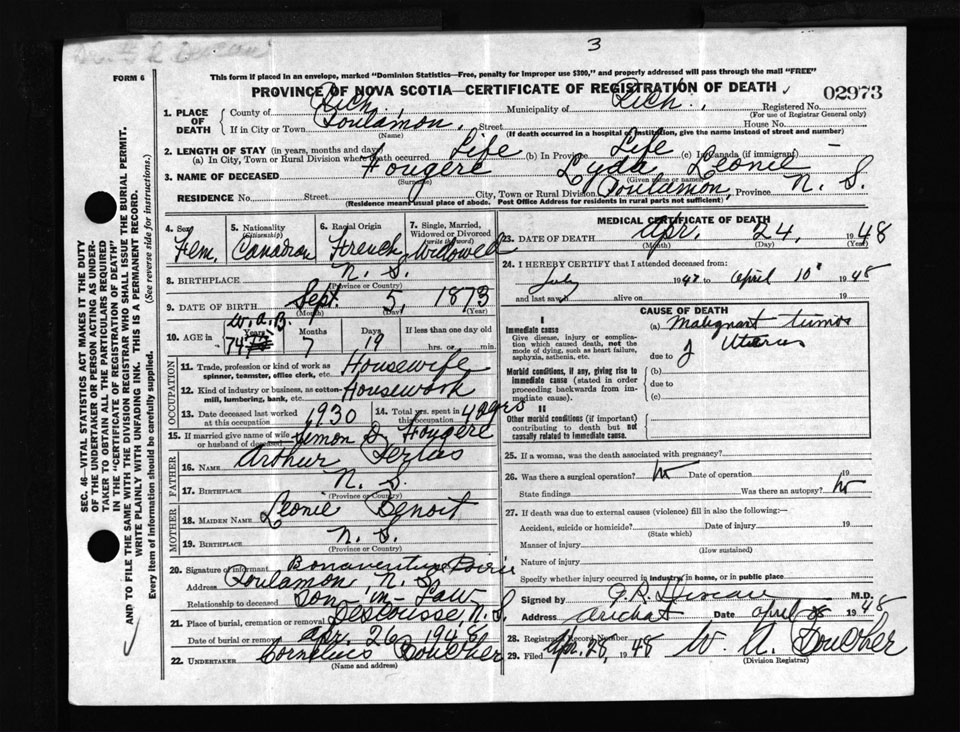 3
FORM 6
This form if placed in an envelope, marked "Dominion Statistics—Free, penalty for improper use $300," and properly addressed will pass through the mail "FREE"
PROVINCE OF NOVA SCOTIA—CERTIFICATE OF REGISTRATION OF DEATH
02973
1. PLACE OF DEATH
County of Rich. Municipality of Rich. Registered No.
(For use of Registrar General only)
If in City or Town Poulamon. Street House No.
(Name) (If death occurred in a hospital or institution, give the name instead of street and number)
2. LENGTH OF STAY (in years, months and days)
(a) In City, Town or Rural Division where death occurred Life (b) In Province Life (c) In Canada (if immigrant) —
3. NAME OF DECEASED Fougere Lyda Leonie
(Surname) (Given name or names)
RESIDENCE No. Street City, Town or Rural Division Poulamon, Province N. S.
(Residence means usual place of abode. Post Office Address for residents in rural parts not sufficient)
4. Sex Fem.
5. Nationality (Citizenship) Canadian
6. Racial Origin French
7. Single, Married, Widowed or Divorced (write the word) Widowed
8. BIRTHPLACE N. S.
(Province or Country)
9. DATE OF BIRTH Sept. 5, 1873
(Month) (Day) (Year)
W. A. B.
10. AGE in Years 74 Months 7 Days 19 If less than one day old hrs. or min.
OCCUPATION
11. Trade, profession or kind of work as spinner, teamster, office clerk, etc. Housewife
12. Kind of industry or business, as cotton-mill, lumbering, bank, etc. Housework
13. Date deceased last worked at this occupation 1930
14. Total yrs. spent in this occupation 40 yrs
15. If married give name of wife or husband of deceased Simon D. Fougere
FATHER
16. NAME Arthur
17. BIRTHPLACE N. S.
(Province or Country)
MOTHER
18. MAIDEN NAME Leonie Benoit
19. BIRTHPLACE N. S.
(Province or Country)
20. Signature of informant Bonaventure Poirier
Address Poulamon N. S.
Relationship to deceased Son-in-Law
21. Place of burial, cremation or removal Descousse, N. S.
Date of burial or removal Apr. 26, 1948
22. UNDERTAKER Cornelius Boucher
(Name and address)
MEDICAL CERTIFICATE OF DEATH
23. DATE OF DEATH Apr. 24, 1948
(Month) (Day) (Year)
24. I HEREBY CERTIFY that I attended deceased from:
July 1947 to April 10 1948
and last saw h alive on 19
CAUSE OF DEATH
I
Immediate cause
Give disease, injury or complication which caused death, not the mode of dying, such as heart failure, asphyxia, asthenia, etc.
(a) Malignant tumor
due to of Uterus
Morbid conditions, if any, giving rise to immediate cause (stated in order proceeding backwards from immediate cause).
(b)
due to
(c)
II
Other morbid conditions (if important) contributing to death but not causally related to immediate cause.
25. If a woman, was the death associated with pregnancy?
26. Was there a surgical operation? No Date of operation 19
State findings Was there an autopsy? No
27. If death was due to external causes (violence) fill in also the following:—
Accident, suicide or homicide? Date of injury 19
(State which)
Manner of injury
(How sustained)
Nature of injury
Specify whether injury occurred in industry, in home, or in public place
Signed by M.D.
Address Arichat Date April 1948
28. Registrar's Record Number
29. Filed Apr. 28, 1948 W. A. Boucher
(Division Registrar)
SEC. 46—VITAL STATISTICS ACT MAKES IT THE DUTY OF THE UNDERTAKER OR PERSON ACTING AS UNDERTAKER TO OBTAIN ALL THE PARTICULARS REQUIRED IN THE "CERTIFICATE OF REGISTRATION OF DEATH"
AND TO FILE THE SAME WITH THE DIVISION REGISTRAR WHO SHALL ISSUE THE BURIAL PERMIT.
WRITE PLAINLY WITH UNFADING INK. THIS IS A PERMANENT RECORD.
Every item of information should be carefully supplied. (See reverse side for instructions.)